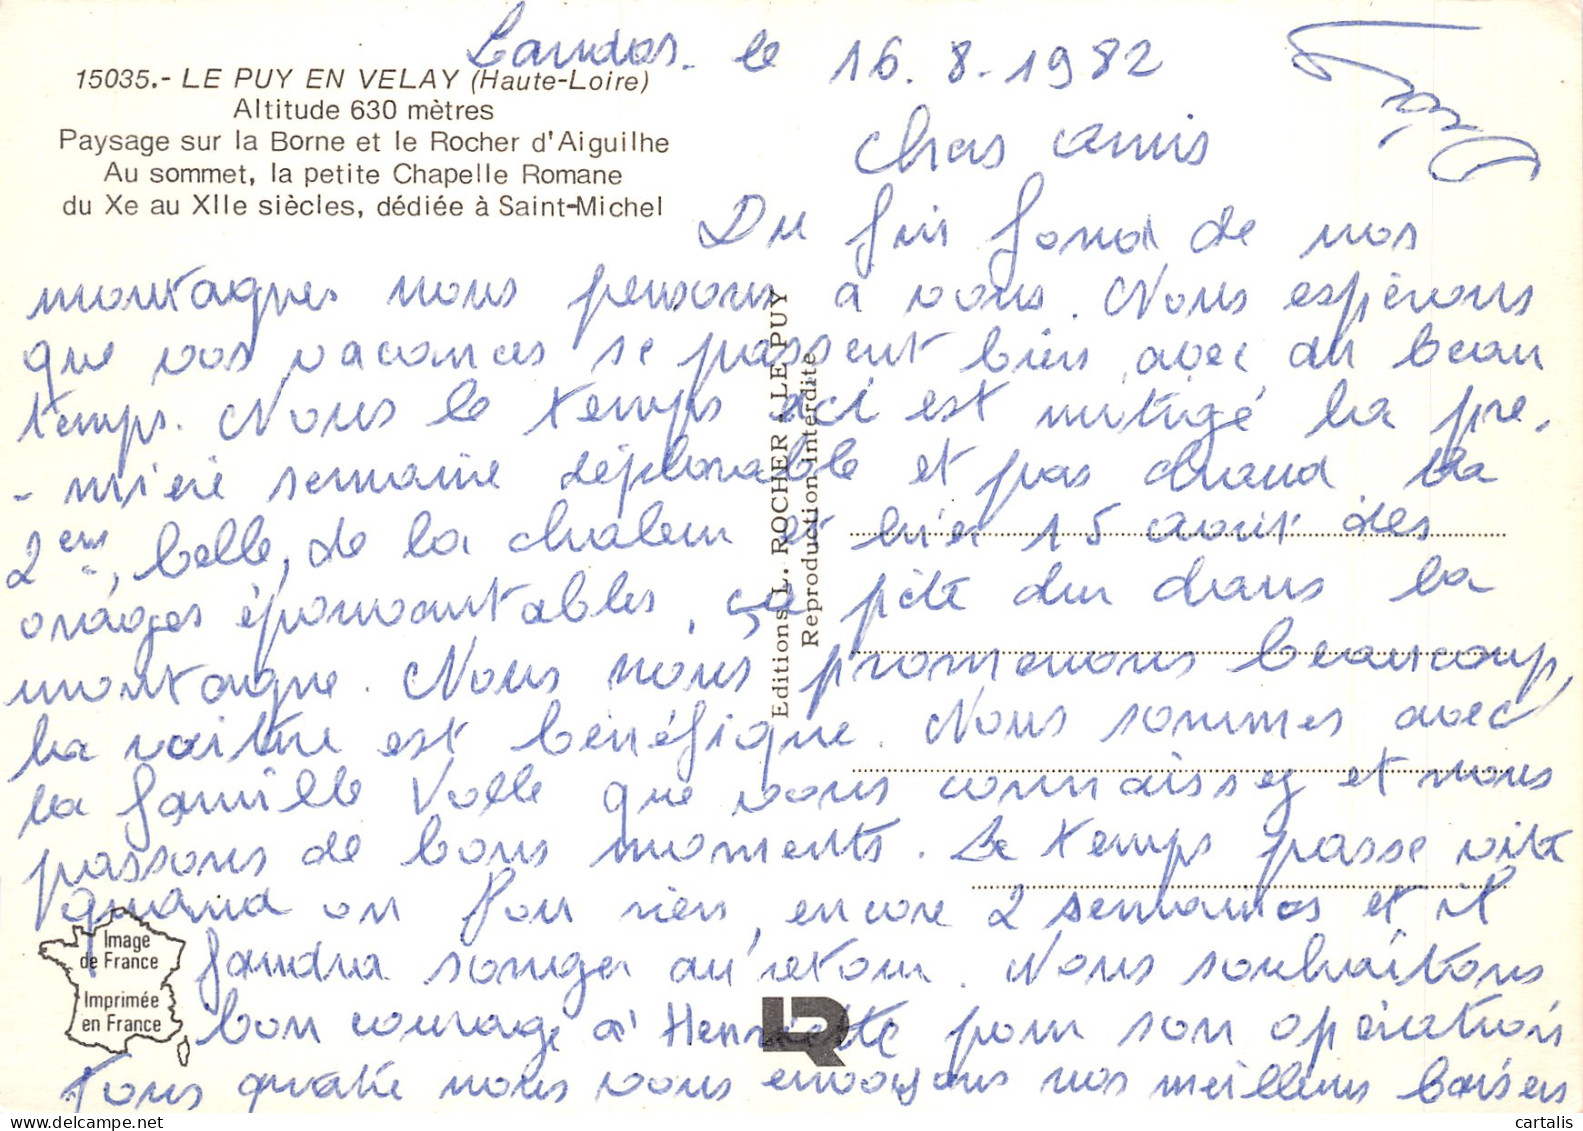 Landos. le 16.8.1982
15035.- LE PUY EN VELAY (Haute-Loire)
Altitude 630 mètres
Paysage sur la Borne et le Rocher d'Aiguilhe
Au sommet, la petite Chapelle Romane
du Xe au XIIe siècles, dédiée à Saint-Michel
Chers amis
Du fin fond de nos
montagnes nous pensons à vous. Nous espérons
que vos vacances se passent bien avec du beau
temps. Nous le temps ici est mitigé la pre-
-mière semaine déplorable et pas chaud. la
2em, belle, de la chaleur et hier 15 août des
orages épouvantables, ça pète dur dans la
montagne. Nous nous promenons beaucoup,
la voiture est bénéfique. Nous sommes avec
la famille Volle que vous connaissez et nous
passons de bons moments. Le temps passe vite
quand on f... rien, encore 2 semaines et il
faudra songer au retour. Nous souhaitons
bon courage à Henriette pour son opération
Tous quatre nous vous envoyons nos meilleurs baisers
Editions L. ROCHER - LE PUY
Reproduction interdite
Image
de France
Imprimée
en France
LR
cartalis